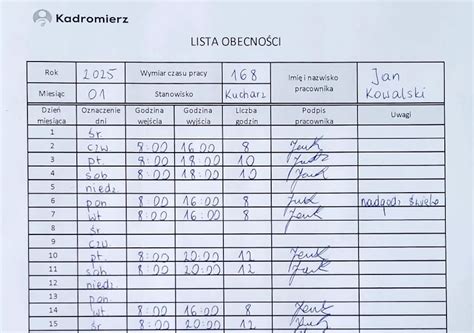 Kadromierz
LISTA OBECNOŚCI
Rok 2025 Wymiar czasu pracy 168 Imię i nazwisko pracownika Jan Kowalski
Miesiąc 01 Stanowisko Kucharz
Dzień miesiąca Oznaczenie dni Godzina wejścia Godzina wyjścia Liczba godzin Podpis pracownika Uwagi
1 śr.
2 czw 8:00 16:00 8
3 pt. 8:00 18:00 10
4 sob 8:00 18:00 10
5 niedz.
6 pon 8:00 16:00 8 nadgodz. święto
7 wt 8:00 16:00 8
8 śr
9 czw.
10 pt. 8:00 20:00 12
11 sob 8:00 20:00 12
12 niedz.
13 pon.
14 wt 8:00 16:00 8
15 śr 8:00 20:00 12